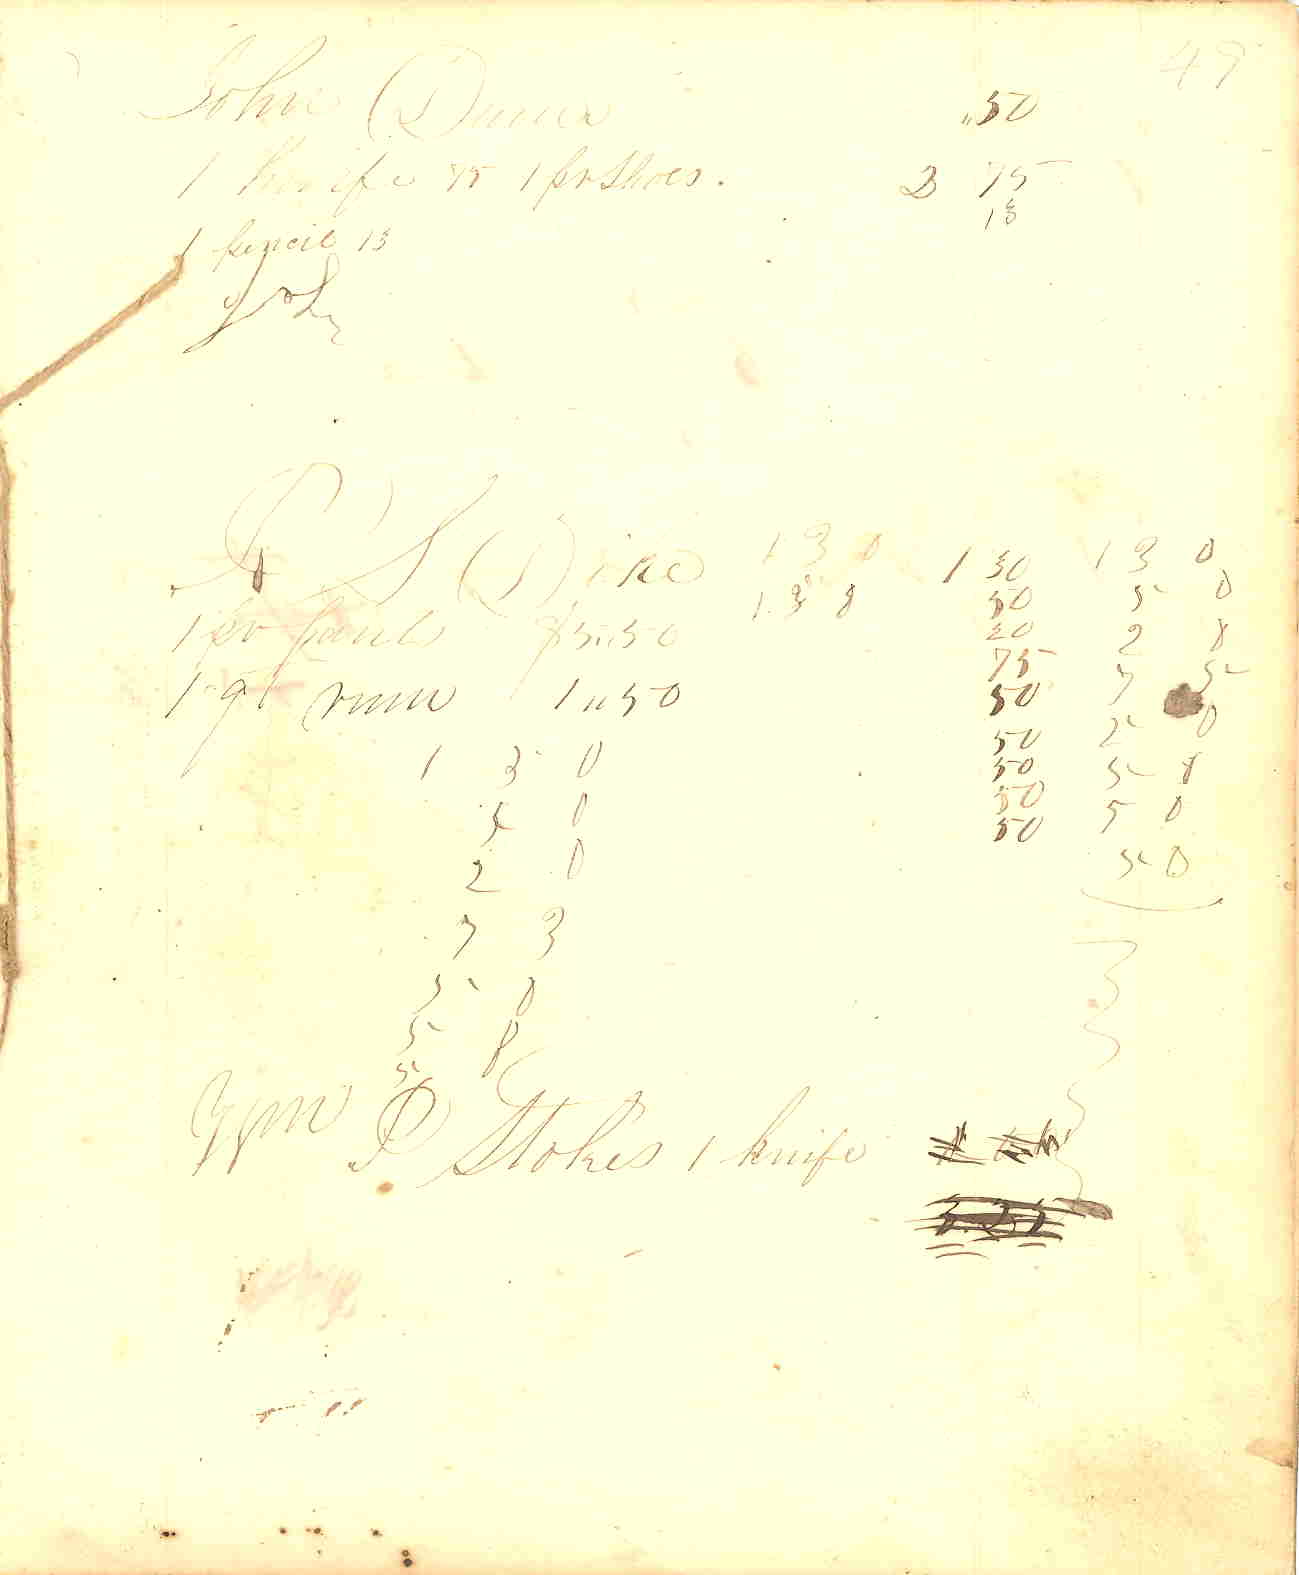 49
John D
"50
1 knife 75 1 pr Shoes. 2 75
13
1 pencil 13
John
S Dike 1 3 0 1 30 1 3 0
1 3 8 50 5 0
1 pr pants $5"50 20 2 8
75 7 5
1 qt rum 1"50 50 2 0
1 3 0 50 5 8
50
5 0 50 5 0
50
2 0 5 0
7 3
5 0
5 8
5
Wm P Stokes 1 knife